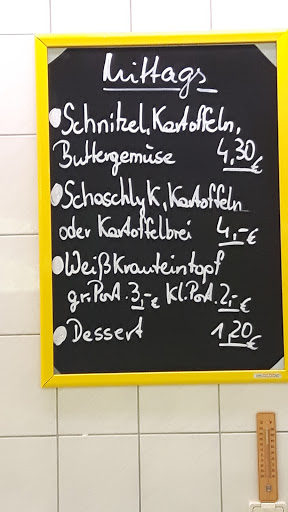 Mittags
Schnitzel, Kartoffeln,
Buttergemüse 4,30€
Schaschlyk, Kartoffeln
oder Kartoffelbrei 4,-€
Weißkrauteintopf
gr. Port. 3,-€ Kl. Port. 2,-€
Dessert 1,20€